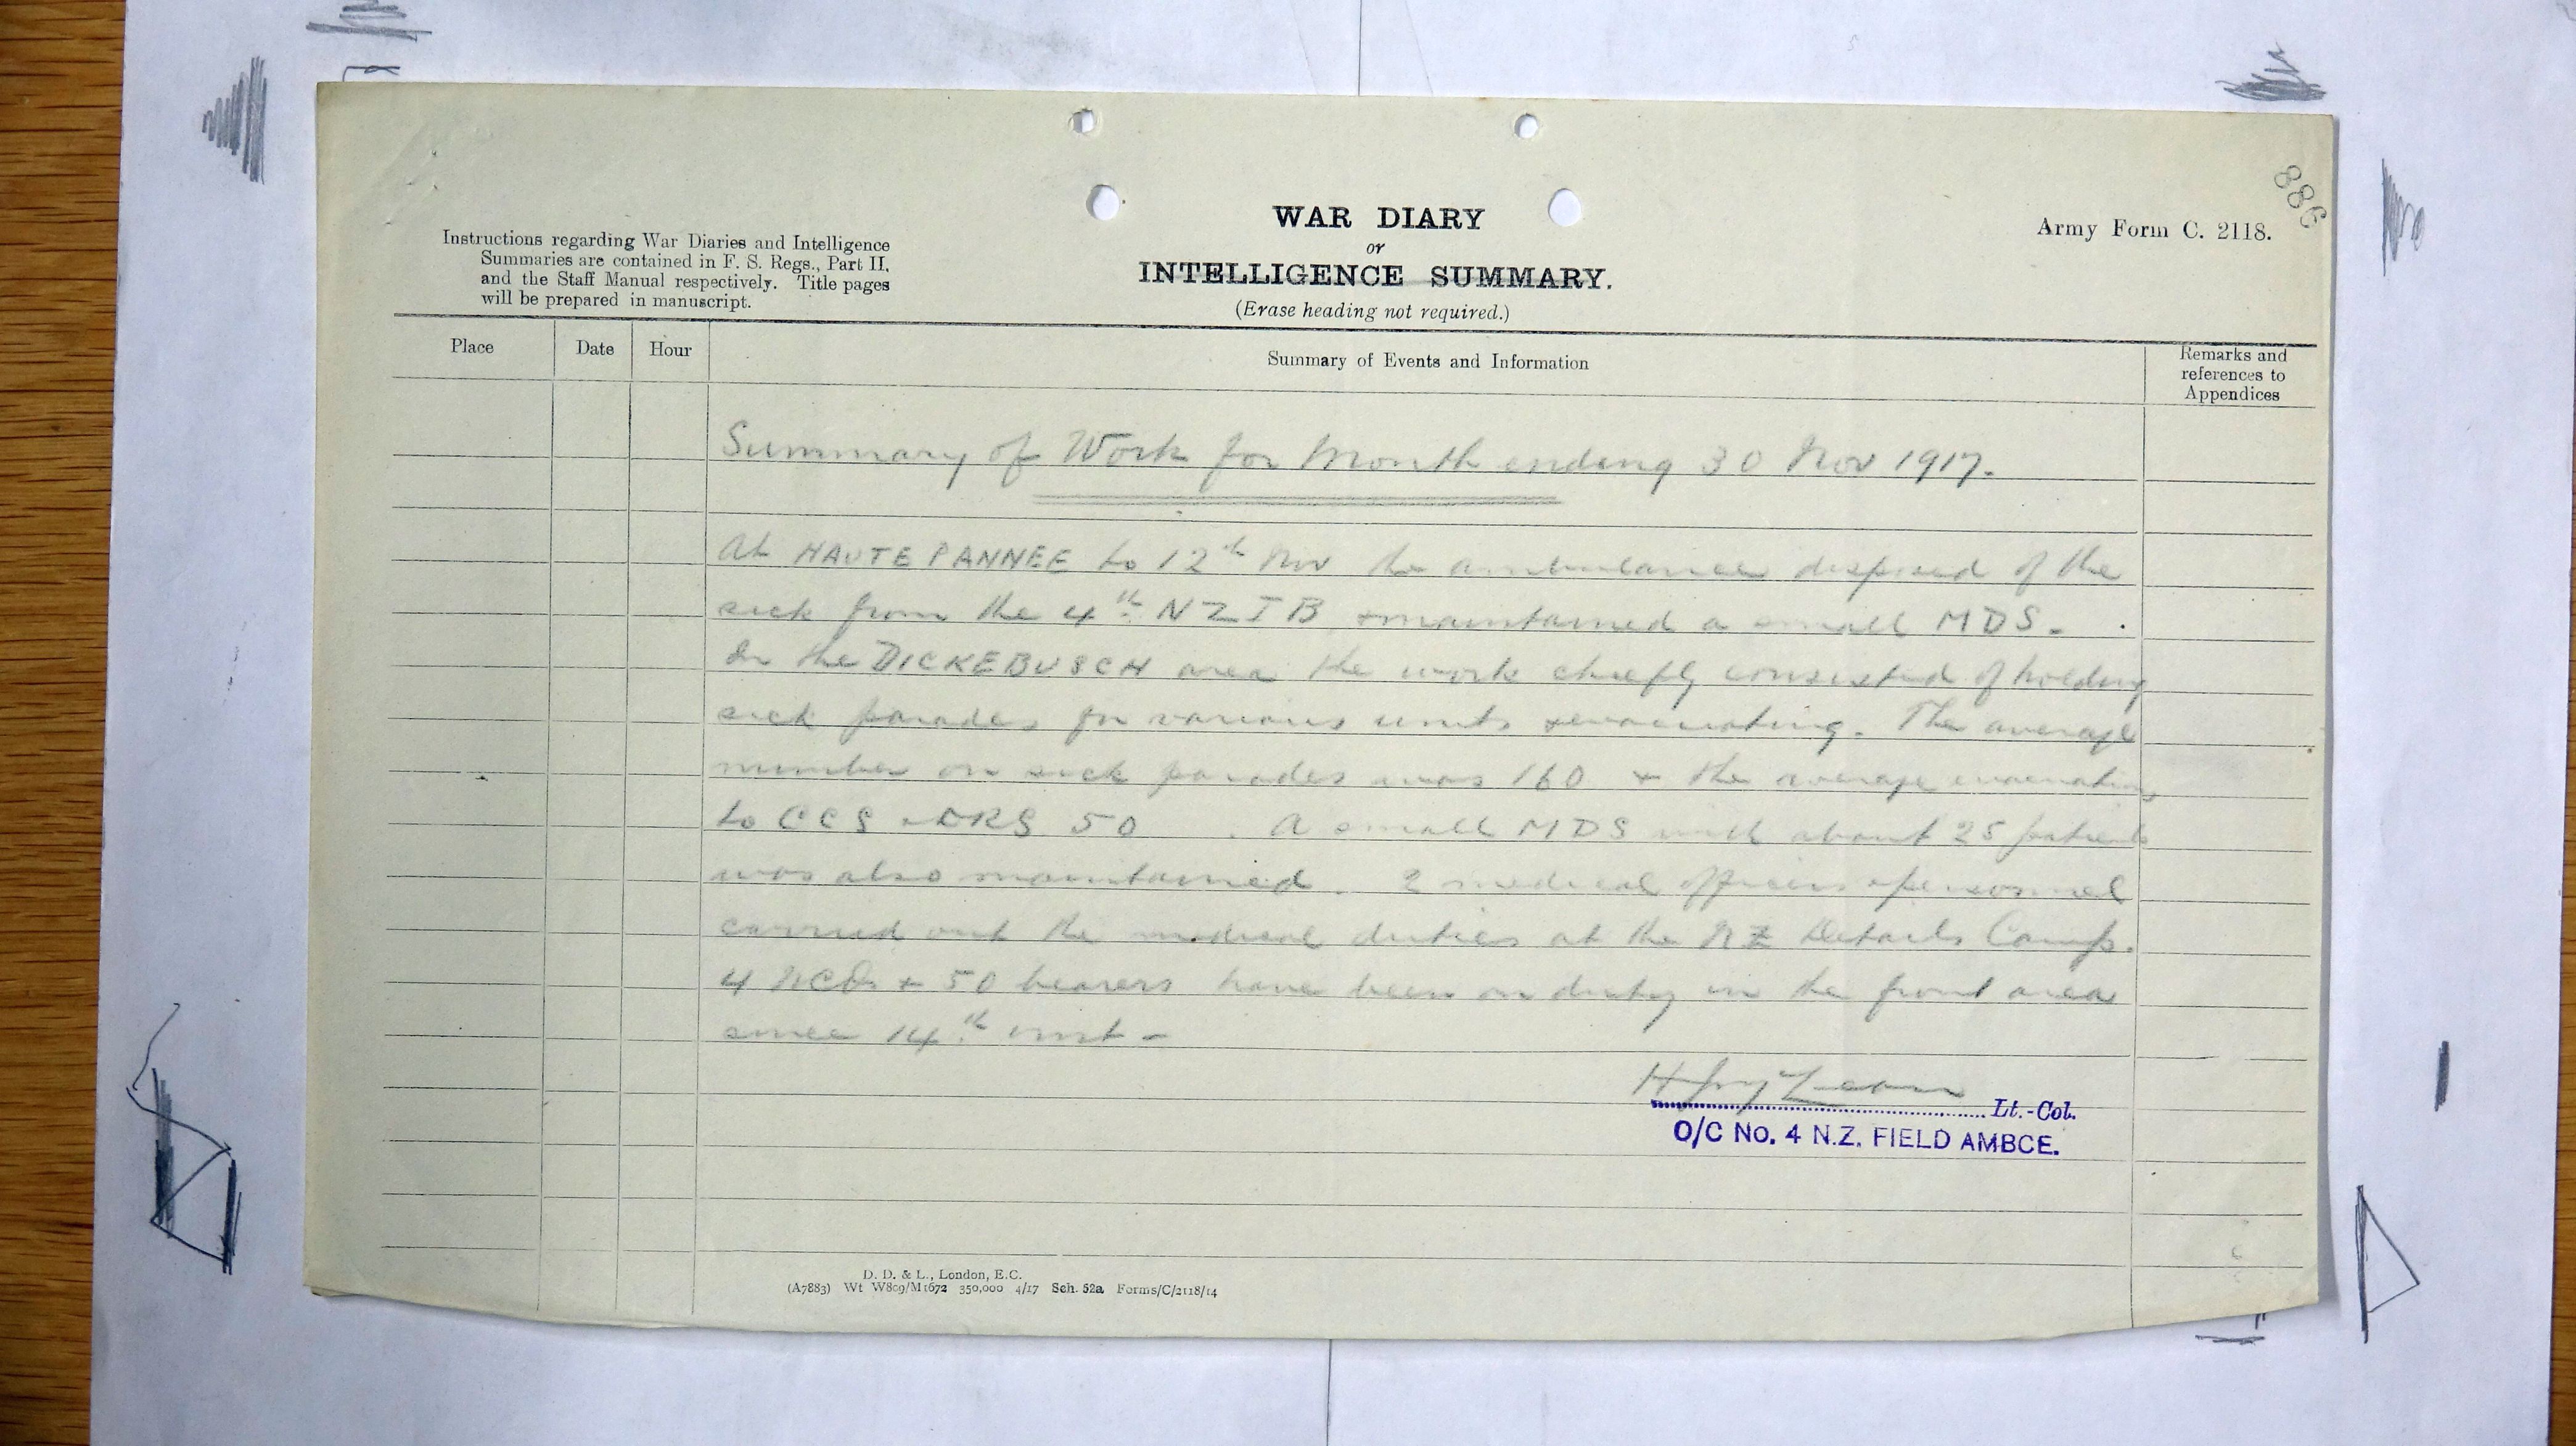 886
WAR DIARY
or
INTELLIGENCE SUMMARY.
(Erase heading not required.)
Army Form C. 2118.
Instructions regarding War Diaries and Intelligence
Summaries are contained in F. S. Regs., Part II,
and the Staff Manual respectively. Title pages
will be prepared in manuscript.
Place
Date
Hour
Summary of Events and Information
Remarks and
references to
Appendices
Summary of Work for Month ending 30 Nov 1917.
At HAUTE PANNEE to 12th Nov the ambulance disposed of the
sick from the 4th NZIB + maintained a small MDS.
In the DICKEBUSCH area the work chiefly consisted of holding
sick parades for various units + evacuating. The average
number on sick parades was 160 + the average evacuations
to CCS + DRS 50. A small MDS with about 25 patients
was also maintained. 2 medical officers + personnel
carried out the medical duties at the NZ Details Camp.
4 NCOs + 50 bearers have been on duty in the front area
since 14th inst -
Lt.-Col.
O/C No. 4 N.Z. FIELD AMBCE.
D. D. & L., London, E.C.
(A7883) Wt W809/M1672 350,000 4/17 Sch. 52a Forms/C/2118/14